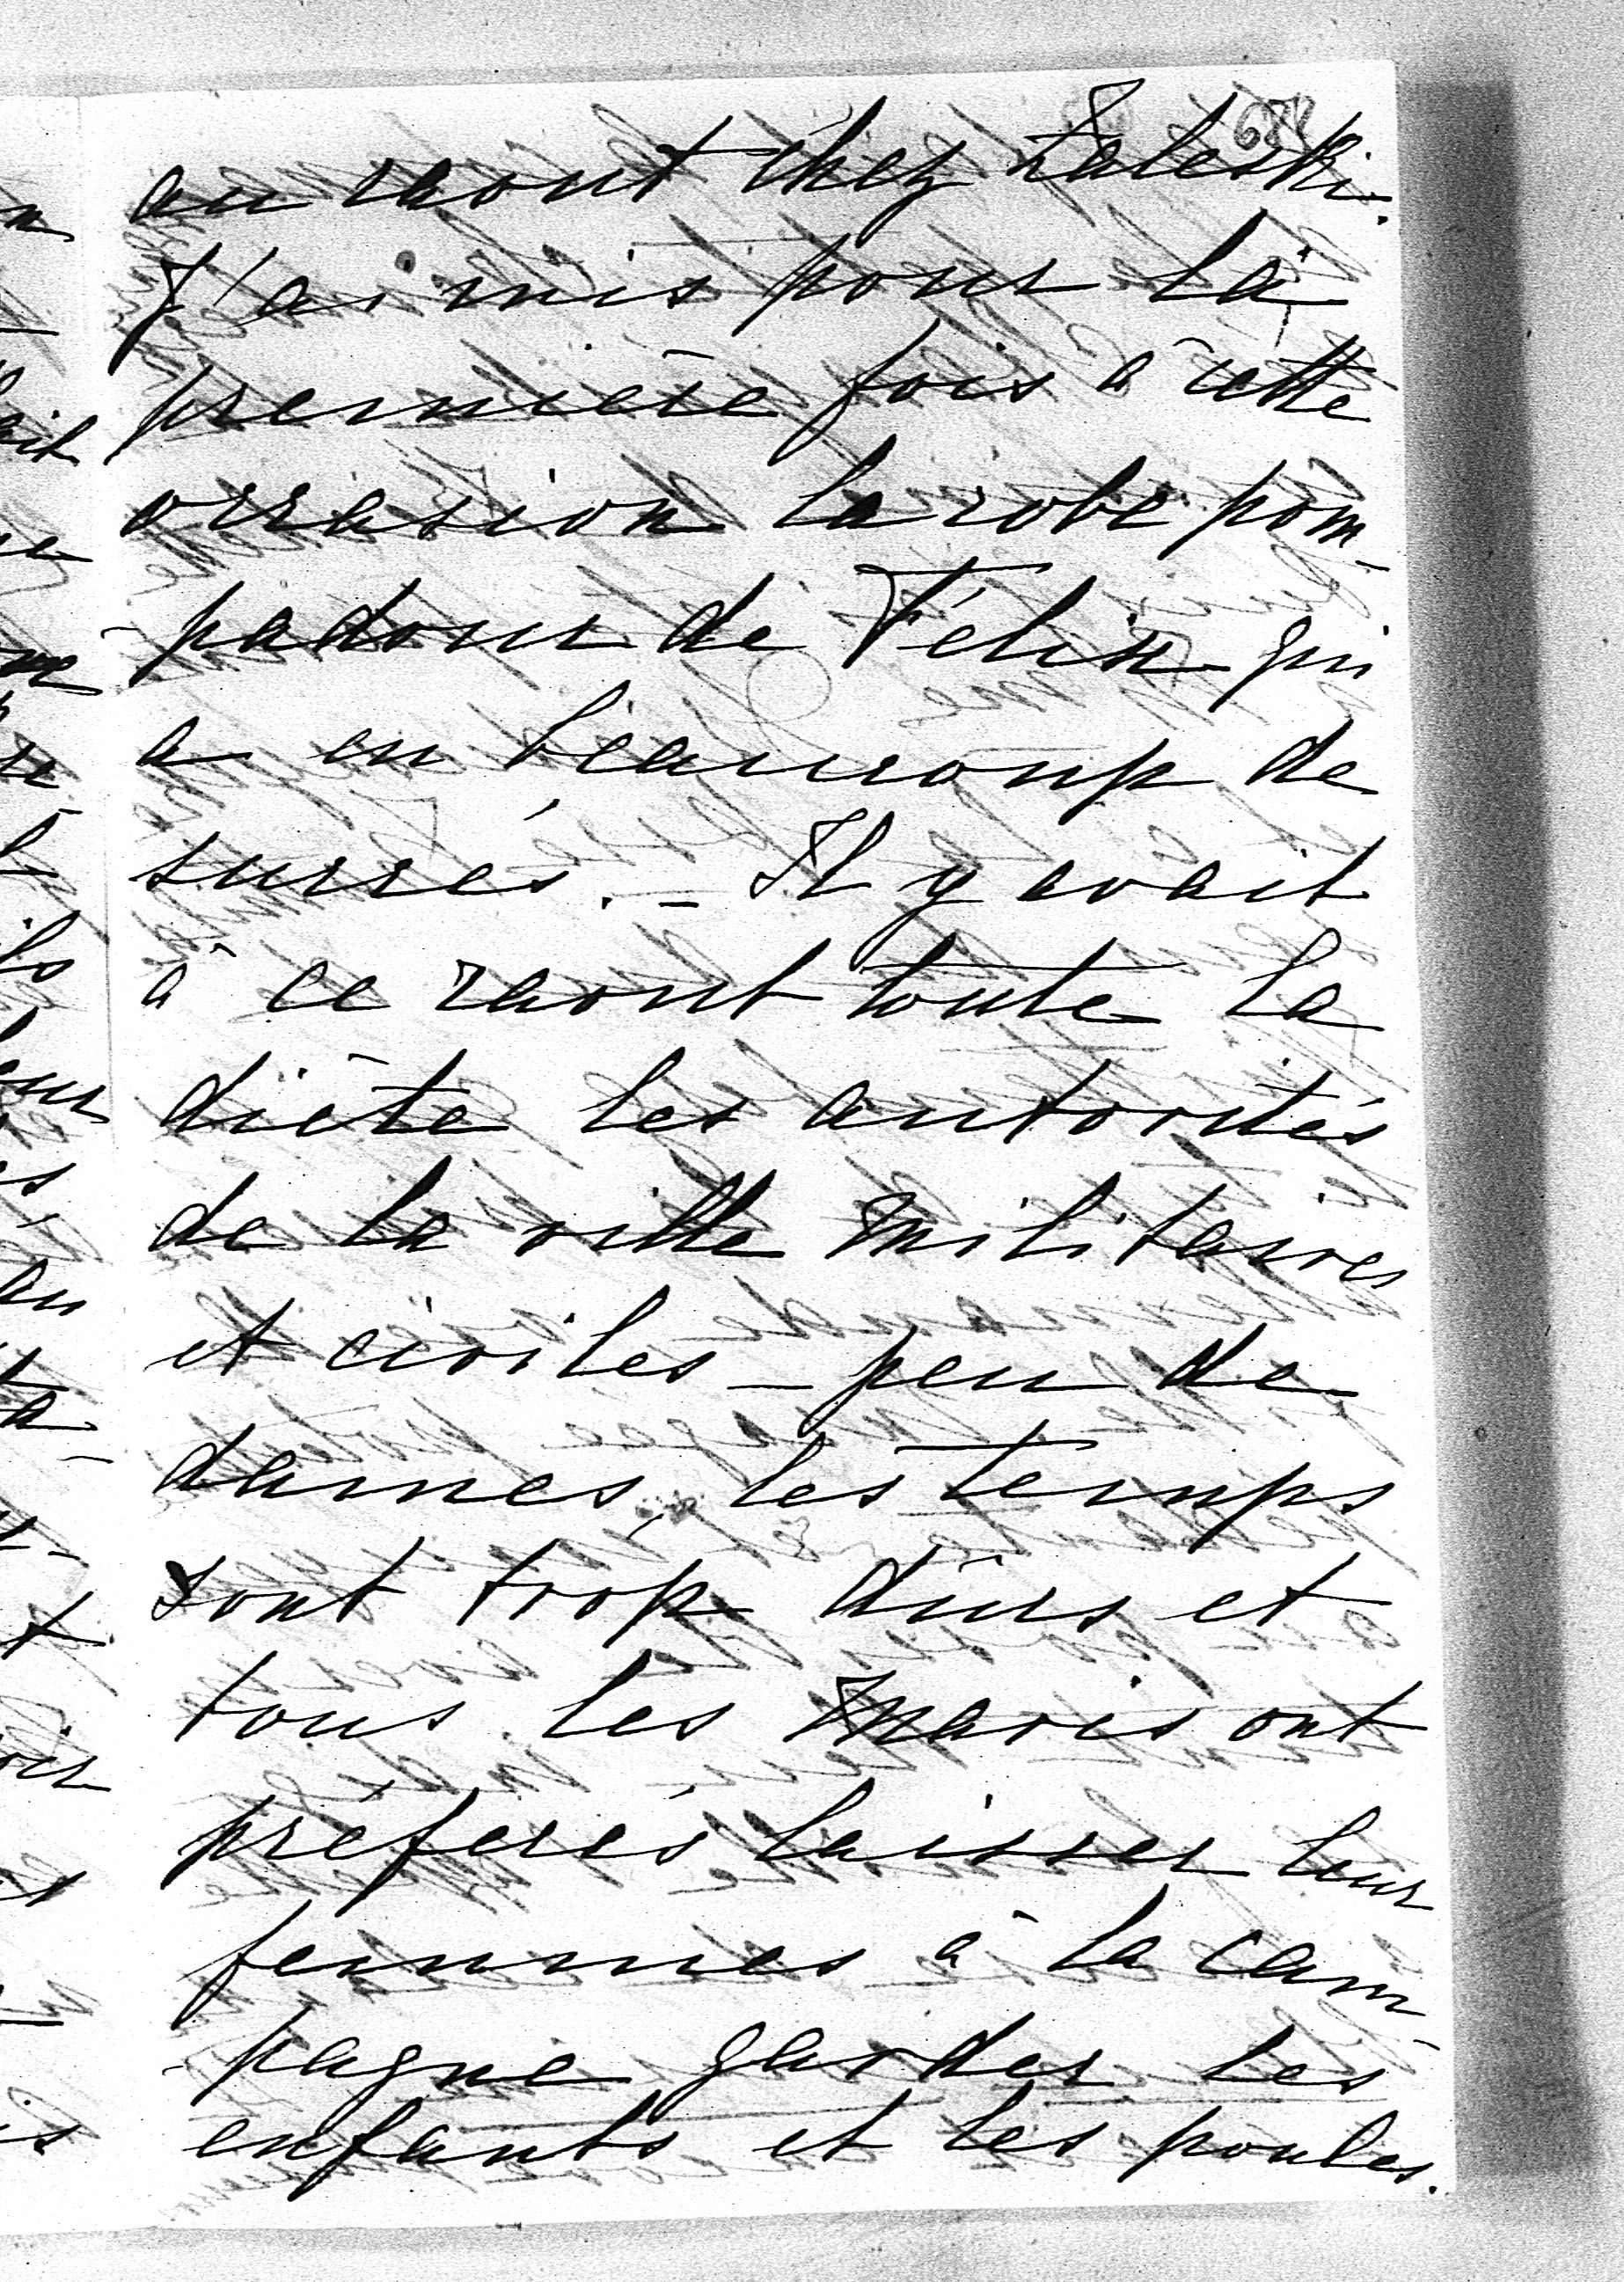 au raout chez Zaleski.
J'ai mis pour la
première fois à cette
occasion la robe pom-
-padour de Félix qui
a eu beaucoup de
succés. – Il y avait
à ce raout toute la
diète les autorités
de la ville militaires
et civiles – peu de
dames, les temps
sont trop durs et
tous les maris ont
préferés laisser leur
femmes à la cam-
-pagne garder les
enfants et les poules.